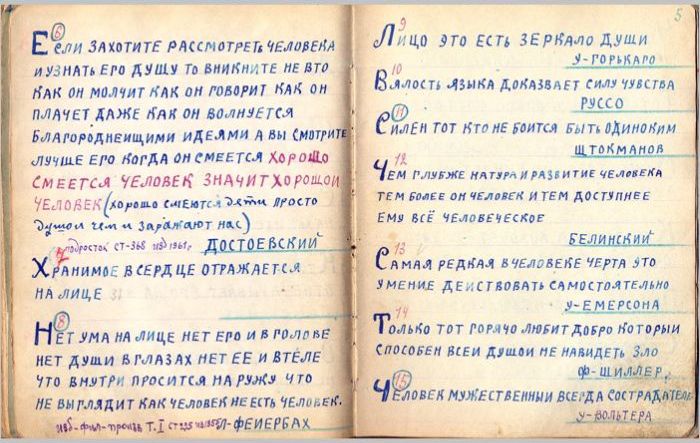 6
Если захотите рассмотреть человека
и узнать его душу то вникните не вто
как он молчит как он говорит как он
плачет даже как он волнуется
благороднеищими идеями а вы смотрите
лучше его когда он смеется хорошо
смеется человек значит хорошои
человек (хорошо смеются дети просто
душои чем и заражают нас)
подросток ст-368 изд 1961г Достоевский
7
Хранимое в сердце отражается
на лице
8
Нет ума на лице нет его и в голове
нет души в глазах нет ее и втеле
что внутри просится на ружу что
не выглядит как человек не есть человек.
изб-фил-произв т. I ст 225 Л-Феиербах
5
9
Лицо это есть зеркало души
у-Горькаго
10
Вялость языка доказвает силу чувства
Руссо
11
Силен тот кто не боится быть одиноким
Щтокманов
12
Чем глубже натура и развитие человека
тем более он человек и тем доступнее
ему всё человеческое
Белинский
13
Самая редкая вчеловеке черта это
умение деиствовать самостоятельно
у-Емерсона
14
Только тот горячо любит добро которыи
способен всеи душои не навидеть зло
ф-Шиллер.
15
Человек мужественныи всегда сострадателе
у-Вольтера